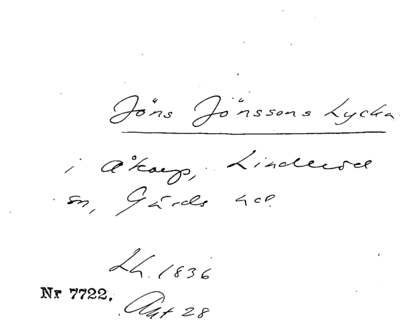 Jöns Jönssons Lycka
i Åkarp, Linderöd
sn, Gärds hd.
Lh. 1836
Nr 7722.
Akt 28